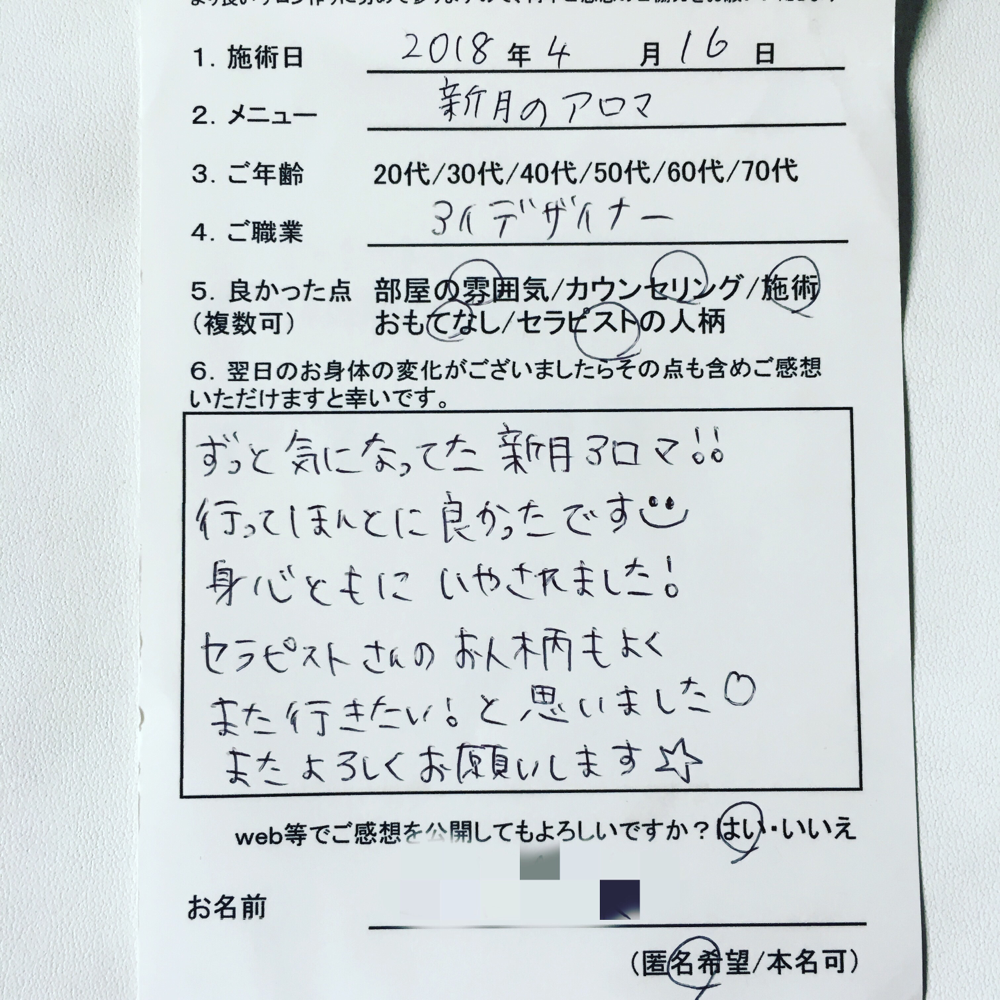 1．施術日 2018年4月16日
2．メニュー 新月のアロマ
3．ご年齢 20代/30代/40代/50代/60代/70代
4．ご職業 デザイナー
5．良かった点 部屋の雰囲気/カウンセリング/施術
（複数可） おもてなし/セラピストの人柄
6．翌日のお身体の変化がございましたらその点も含めご感想
いただけますと幸いです。
ずっと気になってた新月アロマ!!
行ってほんとに良かったです
身心ともにいやされました!
セラピストさんのお人柄もよく
また行きたい!と思いました♡
またよろしくお願いします☆
web等でご感想を公開してもよろしいですか？はい・いいえ
お名前
（匿名希望/本名可）